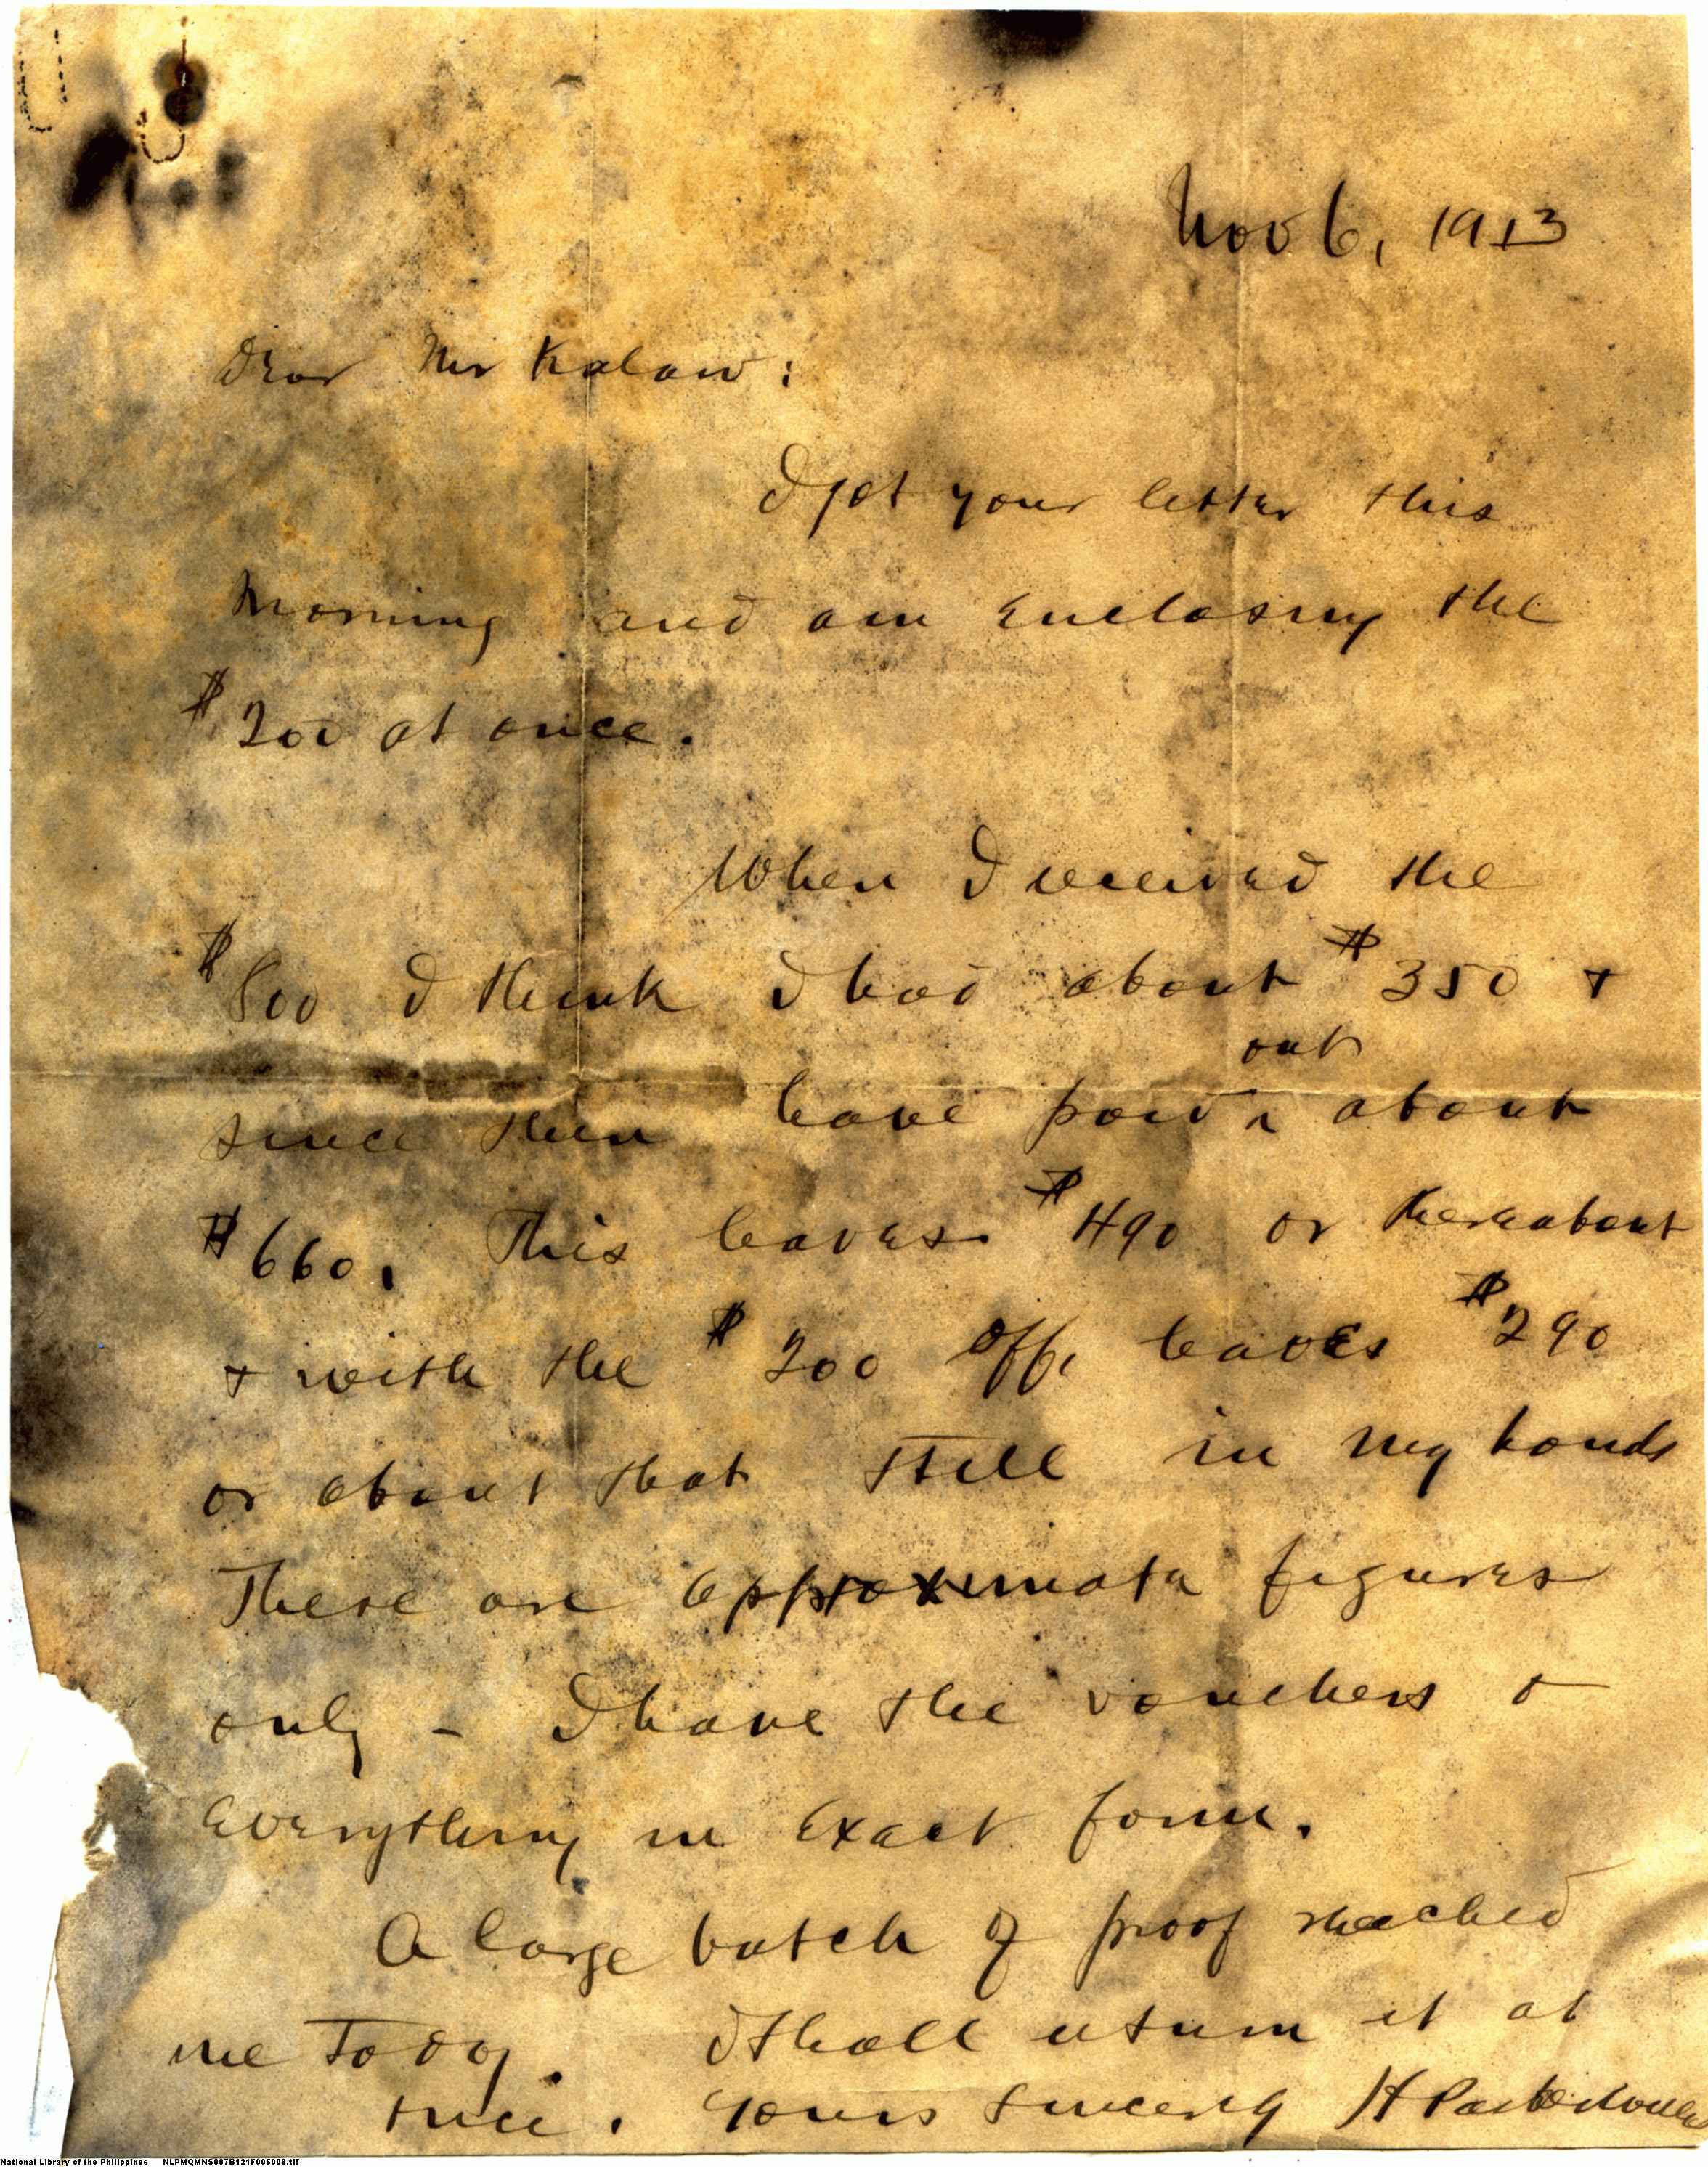 Nov 6, 1913
Dear Mr Kalaw:
I got your letter this
morning and am enclosing the
$200 at once.
When I received the
$800 I think I had about $350 +
out
since then have paid ^ about
$660. This leaves $490 or thereabout
+ with the $200 off, leaves $290
or about that still in my hands
These are approximate figures
only - I have the vouchers +
everything in exact form.
A large batch of proof reached
me today. I shall return it at
once. Yours sincerely H Parker Willis
National Library of the Philippines NLPMQMNS007B121F005008.tif